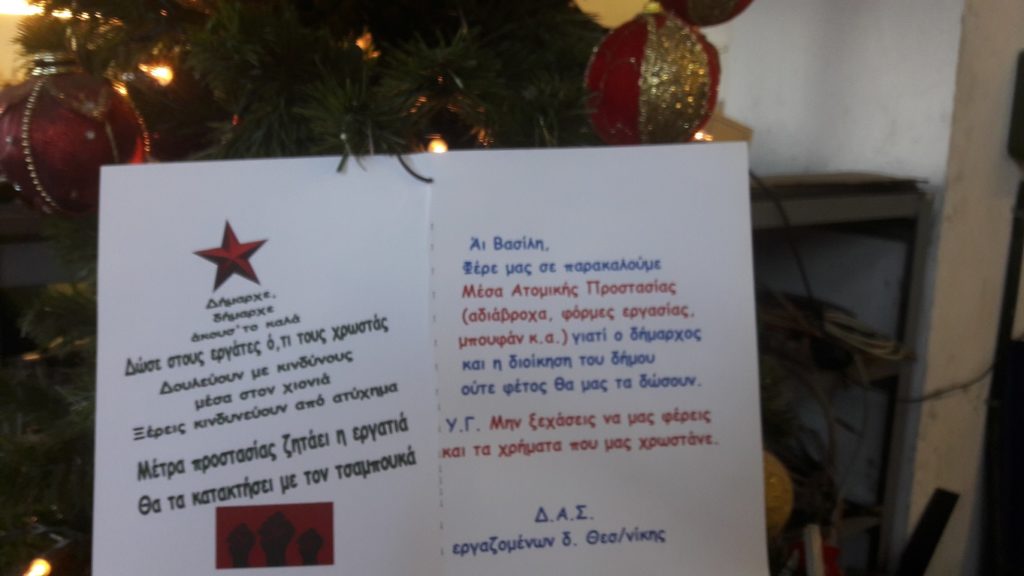 Δήμαρχε,
δήμαρχε
άκουσ' το καλά
Δώσε στους εργάτες ό,τι τους χρωστάς
Δουλεύουν με κινδύνους
μέσα στον χιονιά
Ξέρεις κινδυνεύουν από ατύχημα
Μέτρα προστασίας ζητάει η εργατιά
Θα τα κατακτήσει με τον τσαμπουκά
Άι Βασίλη,
Φέρε μας σε παρακαλούμε
Μέσα Ατομικής Προστασίας
(αδιάβροχα, φόρμες εργασίας,
μπουφάν κ.α.) γιατί ο δήμαρχος
και η διοίκηση του δήμου
ούτε φέτος θα μας τα δώσουν.
Υ.Γ. Μην ξεχάσεις να μας φέρεις
και τα χρήματα που μας χρωστάνε.
Δ.Α.Σ.
εργαζομένων δ. Θεσ/νίκης